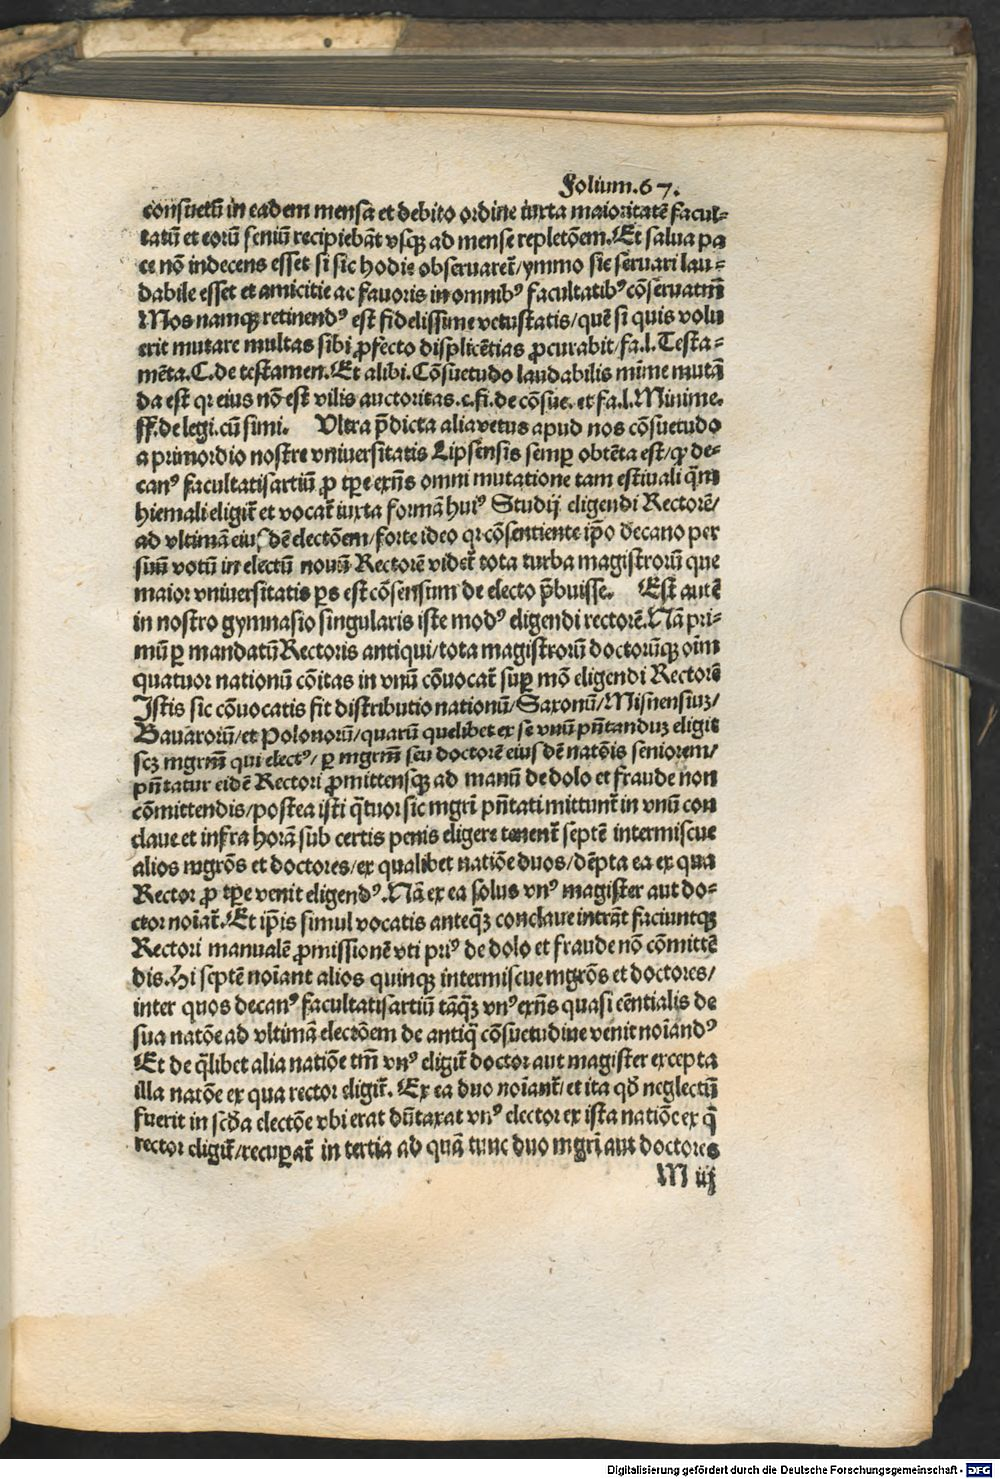 Folium.67.
consuetū in eadem mensa et debito ordine iuxta maioritatē facul⸗
tatū et eorū seniū recipiebāt vsqꝫ ad mense repletōem. Et salua pa
ce nō indecens esset si sic hodie obseruaret̄/ymmo sic seruari lau⸗
dabile esset et amicitie ac fauoris in omnibꝰ facultatibꝰ cōseruatm̄
Mos namqꝫ retinendꝰ est fidelissime vetustatis/quē si quis volu
erit mutare multas sibi ꝓfecto displicētias ꝓcurabit/fa.l. Testa⸗
mēta. C. de testamen. Et alibi. Cōsuetudo laudabilis mime mutā
da est qr eius nō est vilis auctoritas. c. fi. de cōsue. et fa.l. Minime.
ff. de legi. cū simi. Vltra p̄dicta alia vetus apud nos cōsuetudo
a primordio nostre vniuersitatis Lipsensis semꝑ obtēta est/ꝙ de⸗
canꝰ facultatis artiū ꝓ tꝑe exñs omni mutatione tam estiuali q̄m
hiemali eligit̄ et vocat̄ iuxta formā huiꝰ Studij eligendi Rectorē/
ad vltimā eiusdē electōem/forte ideo qr cōsentiente ip̄o decano per
suū votū in electū nouū Rectorē videt̄ tota turba magistrorū que
maior vniuersitatis ꝑs est cōsensum de electo p̄buisse. Est autē
in nostro gymnasio singularis iste modꝰ eligendi rectorē. Nā pri⸗
mū ꝑ mandatū Rectoris antiqui/tota magistrorū doctorūqꝫ oīm
quatuor nationū cōitas in vnū cōuocat̄ suꝑ mō eligendi Rectorē
Istis sic cōuocatis fit distributio nationū/Saxonū/Misnensiuꝫ/
Bauarorū/et Polonorū/quarū quelibet ex se vnū pn̄tanduꝫ eligit
scꝫ mgrm̄ qui electꝰ/ꝑ mgrm̄ seu doctorē eiusdē natōis seniorem/
pn̄tatur eidē Rectori ꝓmittensqꝫ ad manū de dolo et fraude non
cōmittendis/postea isti q̄tuor sic mgri pn̄tati mittunt̄ in vnū con
claue et infra horā sub certis penis eligere tenent̄ septē intermiscue
alios mgrōs et doctores/ex qualibet natiōe duos/dēpta ea ex qua
Rector ꝓ tꝑe venit eligendꝰ. Nā ex ea solus vnꝰ magister aut do⸗
ctor noīat̄. Et ip̄is simul vocatis anteq̄ꝫ conclaue intrāt faciuntqꝫ
Rectori manualē ꝓmissionē vti priꝰ de dolo et fraude nō cōmittē
dis. Hi septē noīant alios quinqꝫ intermiscue mgrōs et doctores/
inter quos decanꝰ facultatis artiū tāq̄ꝫ vnꝰ exñs quasi cēntialis de
sua natōe ad vltimā electōem de antiq̄ cōsuetudine venit noīandꝰ
Et de q̄libet alia natiōe tm̄ vnꝰ eligit̄ doctor aut magister excepta
illa natōe ex qua rector eligit̄. Ex ea duo noīant̄/et ita qd̄ neglectū
fuerit in scd̄a electōe vbi erat dūtaxat vnꝰ elector ex ista natiōe ex q̄
rector eligit̄/recuꝑat̄ in tertia ad quā tunc duo mgri aut doctores
M iij
Digitalisierung gefördert durch die Deutsche Forschungsgemeinschaft - DFG